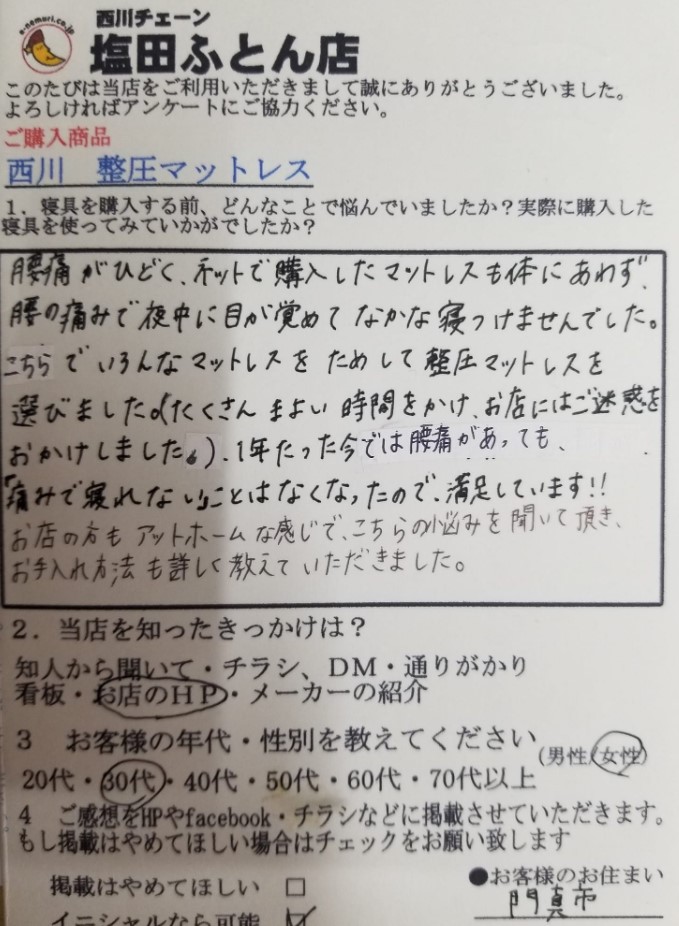 e-nemuri.co.jp
西川チェーン
塩田ふとん店
このたびは当店をご利用いただきまして誠にありがとうございました。
よろしければアンケートにご協力ください。
ご購入商品
西川　整圧マットレス
１．寝具を購入する前、どんなことで悩んでいましたか？実際に購入した
寝具を使ってみていかがでしたか？
腰痛がひどく、ネットで購入したマットレスも体にあわず、
腰の痛みで夜中に目が覚めてなかな寝つけませんでした。
こちらでいろんなマットレスをためして整圧マットレスを
選びました。(たくさんまよい時間をかけ、お店にはご迷惑を
おかけしました。). 1年たった今では腰痛があっても、
「痛みで寝れない」ことはなくなったので、満足しています!!
お店の方もアットホームな感じで、こちらの悩みを聞いて頂き、
お手入れ方法も詳しく教えていただきました。
２．当店を知ったきっかけは？
知人から聞いて・チラシ、ＤＭ・通りがかり
看板・お店のＨＰ・メーカーの紹介
３　お客様の年代・性別を教えてください(男性/女性)
20代・30代・40代・50代・60代・70代以上
４　ご感想をHPやfacebook・チラシなどに掲載させていただきます。
もし掲載はやめてほしい場合はチェックをお願い致します
掲載はやめてほしい □
●お客様のお住まい
門真市
イニシャルなら可能 ☑